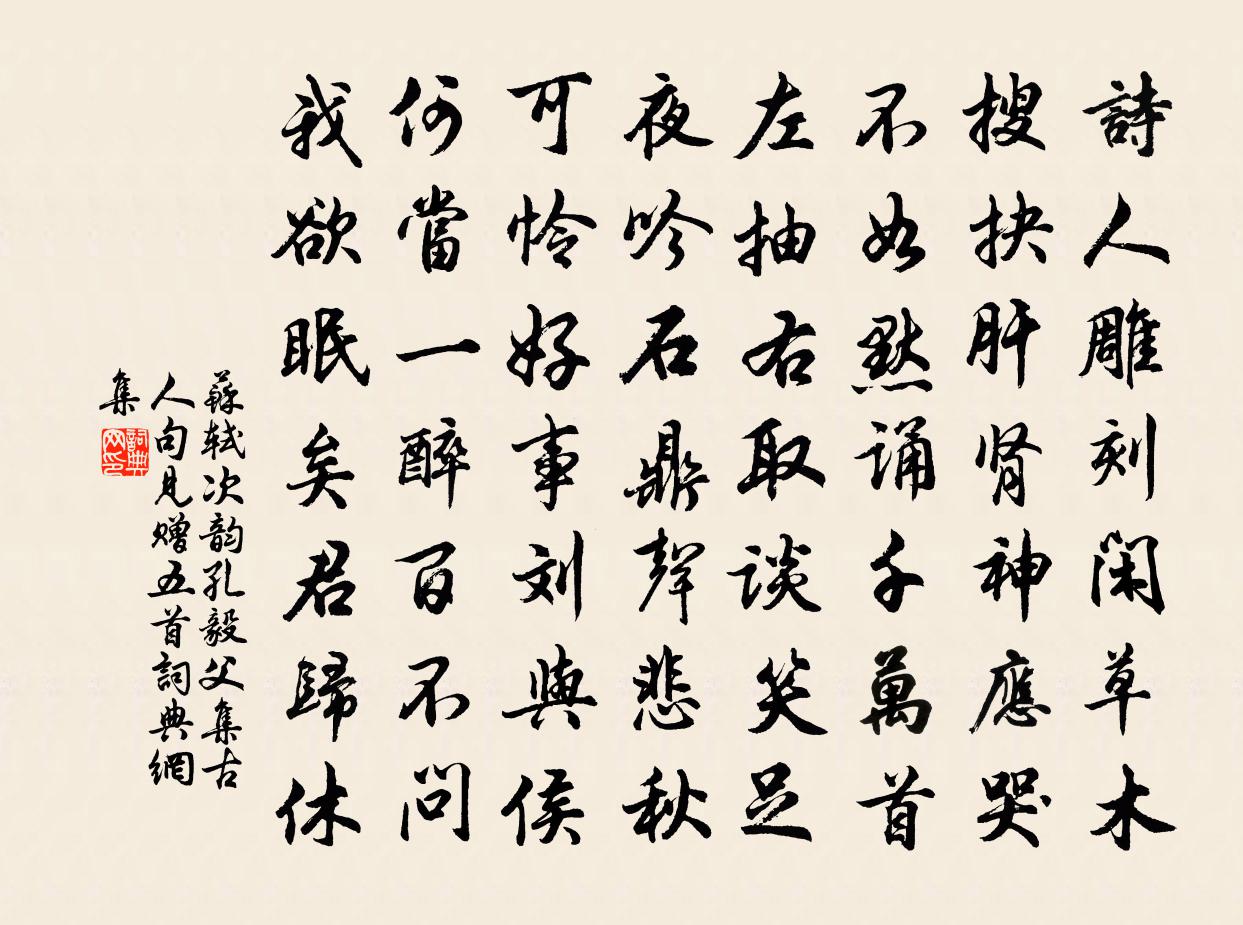 詩人雕刻閑草木
搜抉肝腎神應哭
不如默誦千萬首
左抽右取談笑足
夜吟石鼎聲悲秋
可怜好事刘與侯
何當一醉百不問
我欲眠矣君歸休
蘇軾次韵孔毅父集古
人句見贈五首詞典網
集
詞典网印